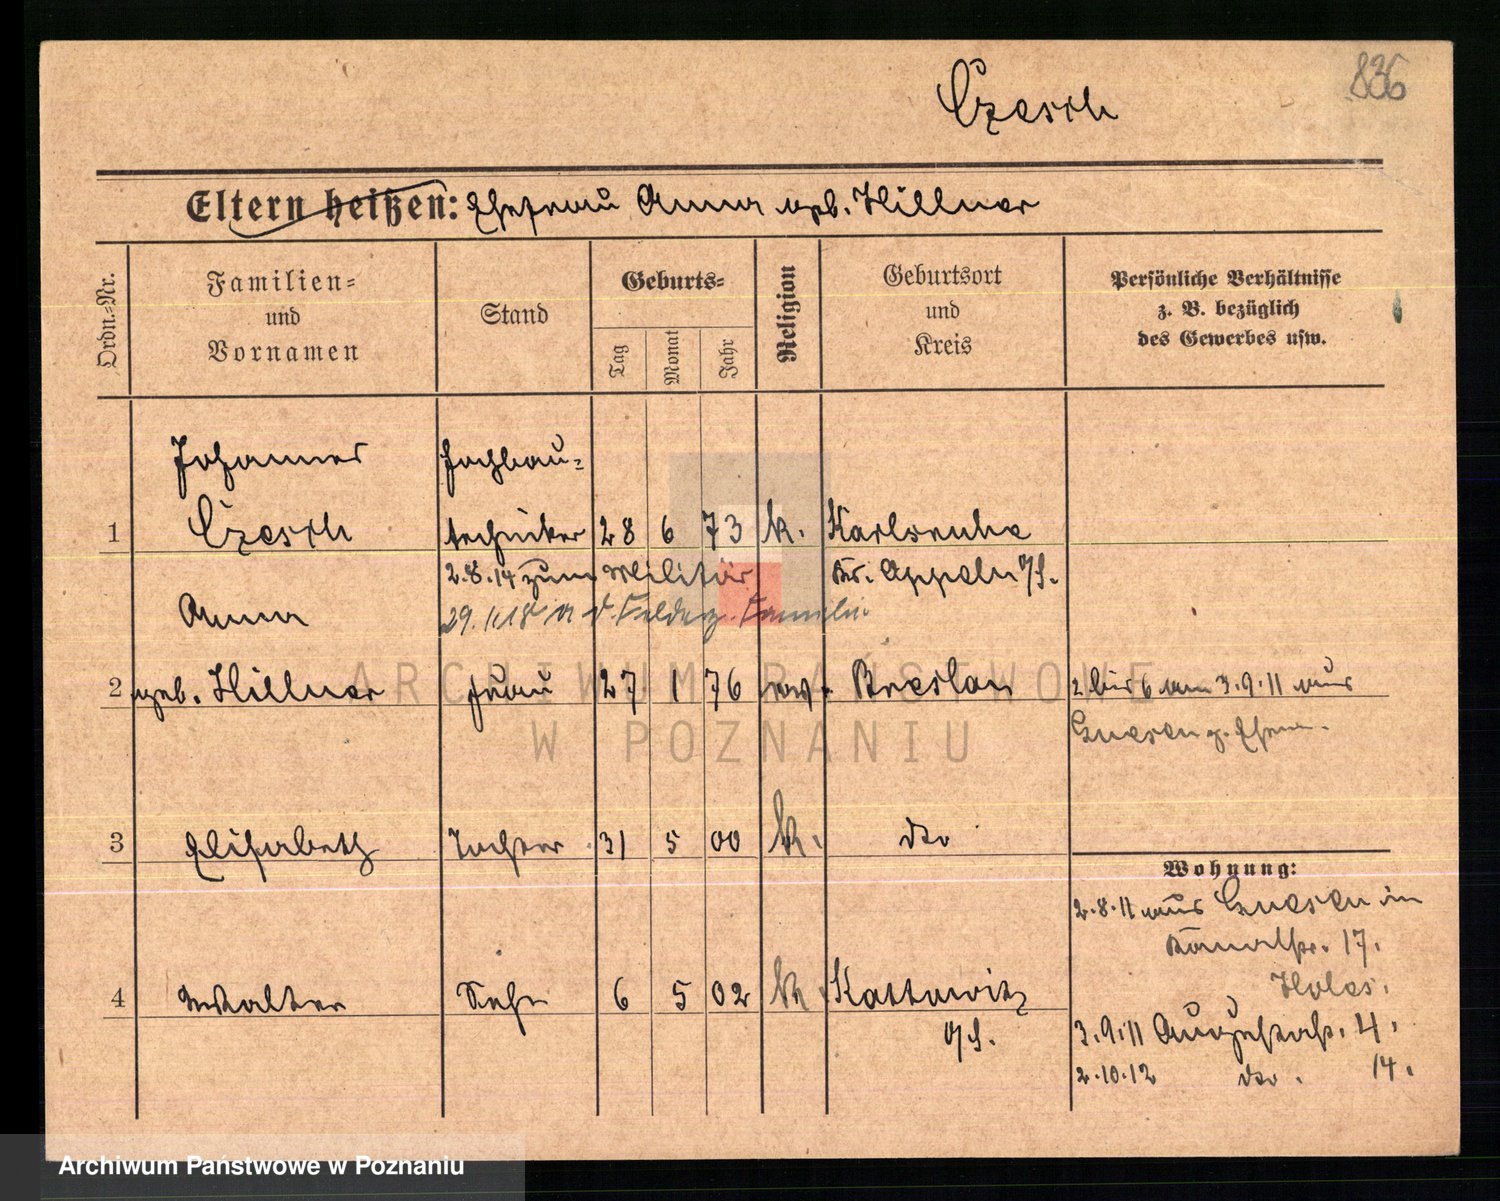 836
Czesch
Eltern heißen: Ehefrau Anna geb. Hillner
Ordn.-Nr.
Familien-
und
Vornamen
Stand
Geburts-
Tag
Monat
Jahr
Religion
Geburtsort
und
Kreis
Persönliche Verhältnisse
z. B. bezüglich
des Gewerbes usw.
Johannes
Hochbau-
1 Czesch techniker 28 6 73 k. Karlsruhe
2.8.14 zum Militär Kr. Oppeln O/S.
Anna
29. 18 Familie
2 geb. Hillner Frau 27 1 76 ev. Breslau 2 bis 6 am 3.9.11 aus
Gnesen z. Ehem.
3 Elisabeth Tochter 31 5 00 k. dto
Wohnung:
2.8.11 aus Gnesen in
Kanalstr. 17.
4 Walter Sohn 6 5 02 k. Kattowitz
O/S.
3.9.11 Augustastr. 4.
2.10.12 dto. 14.
ARCHIWUM PAŃSTWOWE
W POZNANIU
Archiwum Państwowe w Poznaniu